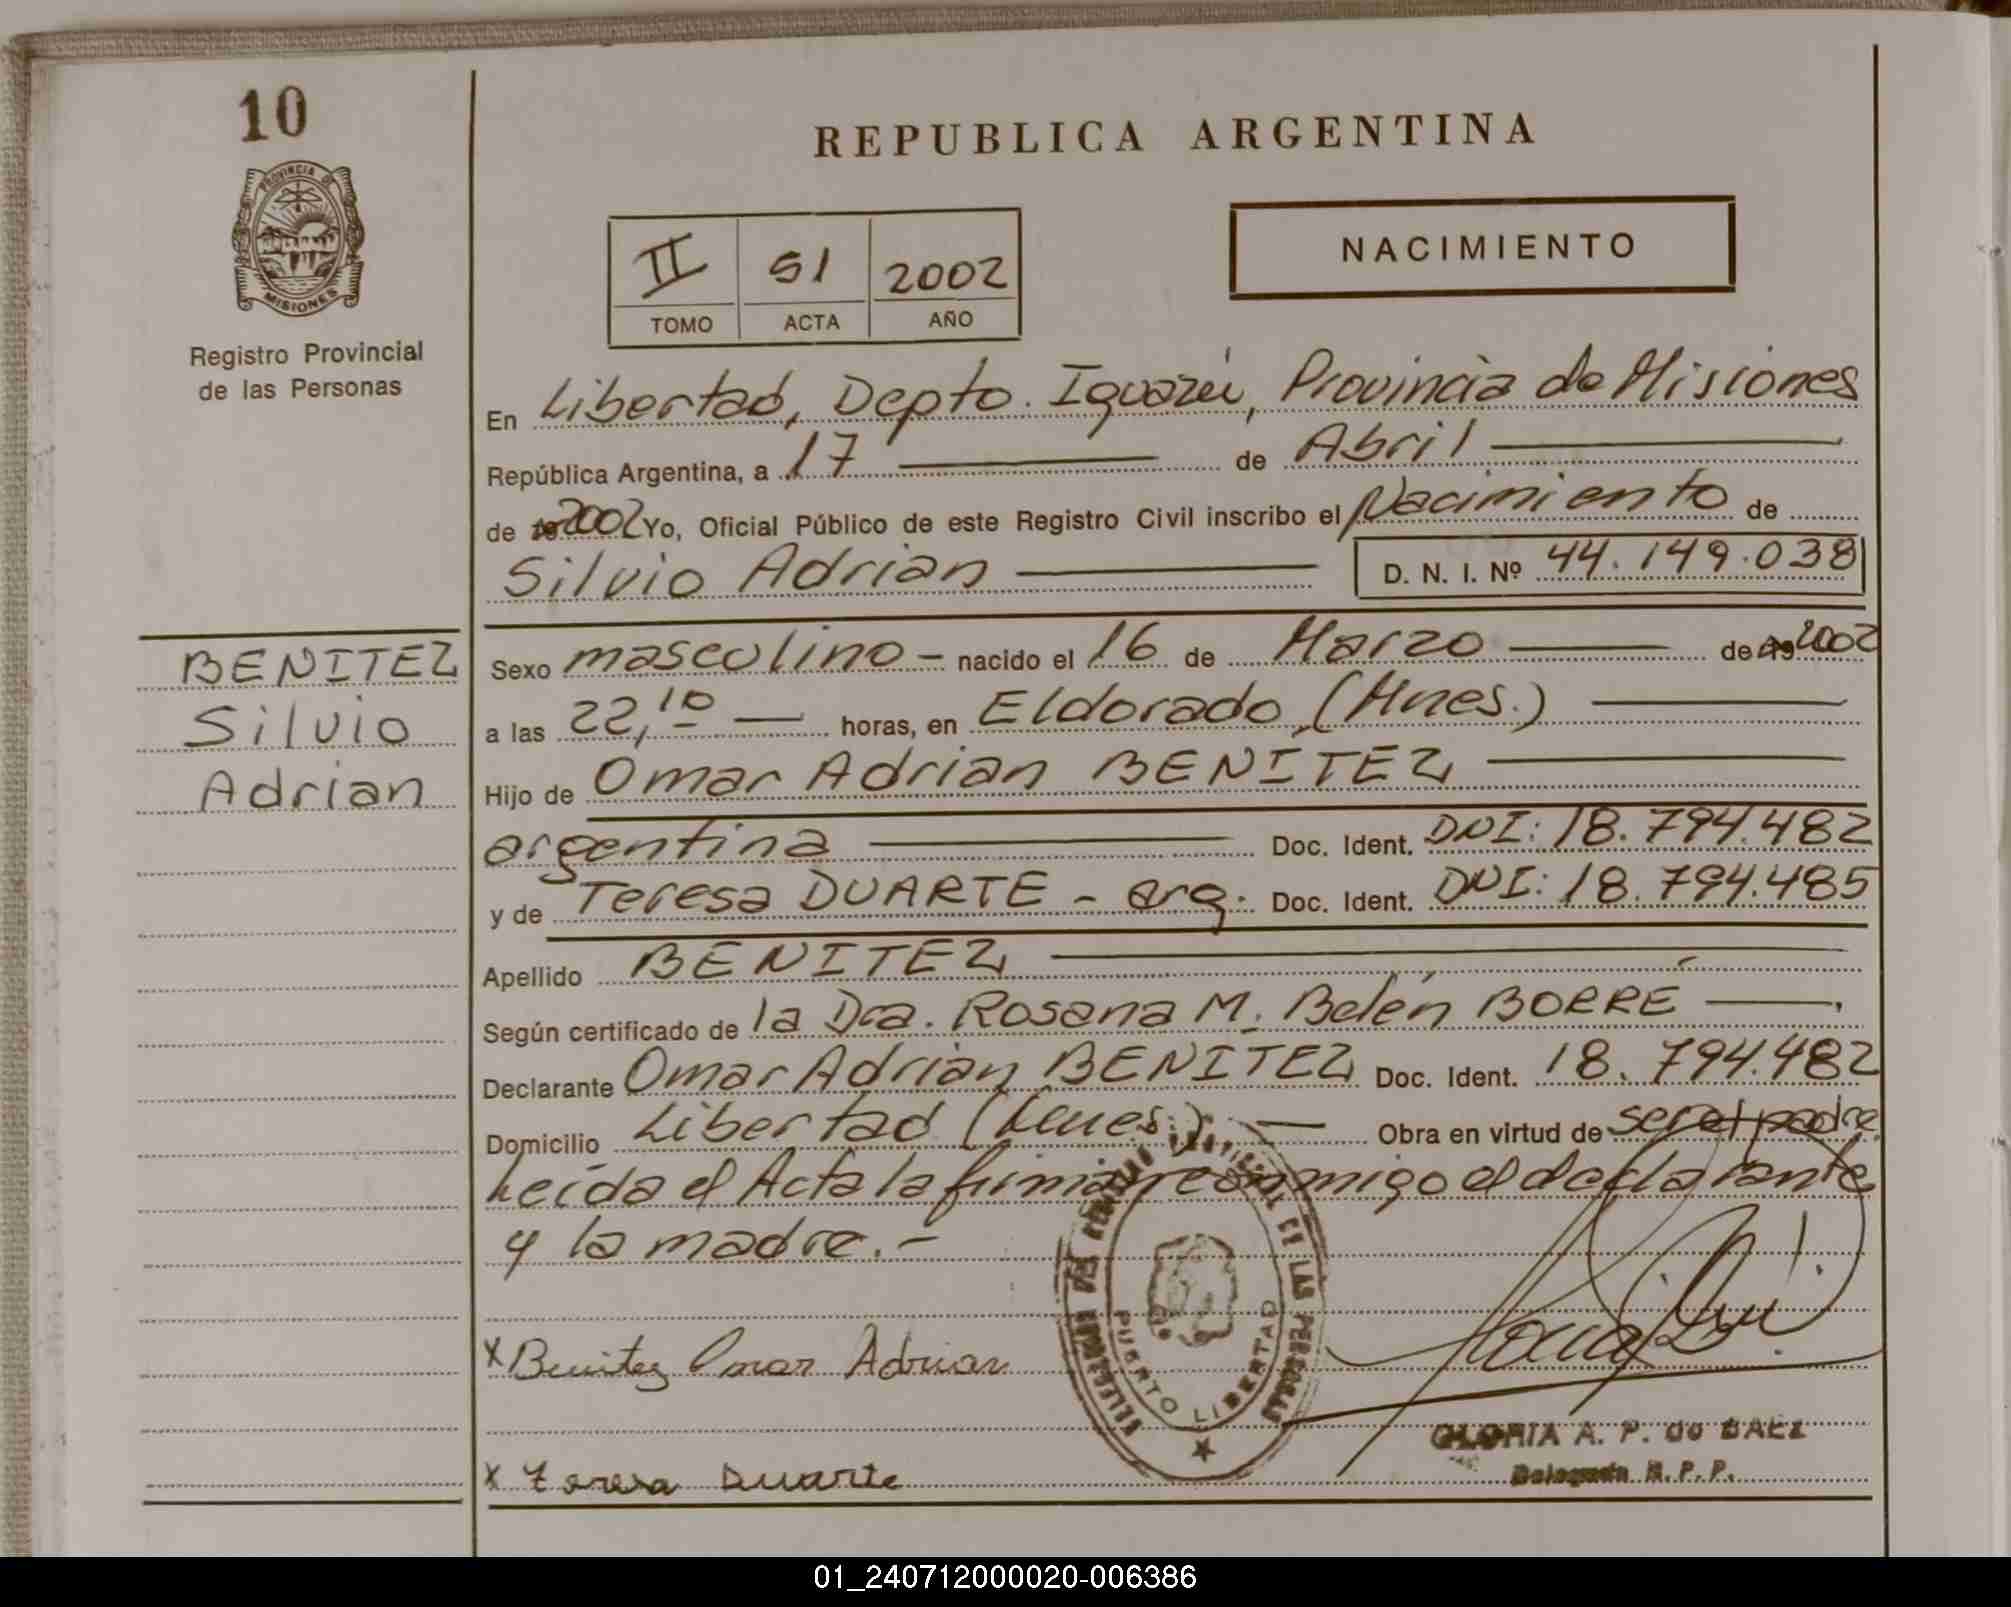 10
PROVINCIA DE
MISIONES
Registro Provincial
de las Personas
BENITEZ
Silvio
Adrian
REPUBLICA ARGENTINA
II 51 2002
TOMO ACTA AÑO
NACIMIENTO
En Libertad, Depto. Iguazú, Provincia de Misiones
República Argentina, a 17 de Abril
de 2002 Yo, Oficial Público de este Registro Civil inscribo el Nacimiento de
Silvio Adrian D. N. I. Nº 44.149.038
Sexo masculino - nacido el 16 de Marzo de 2002
a las 22,10 horas, en Eldorado (Mnes.)
Hijo de Omar Adrian BENITEZ
argentina Doc. Ident. DNI: 18.794.482
y de Teresa DUARTE - arg. Doc. Ident. DNI: 18.794.485
Apellido BENITEZ
Según certificado de la Dra. Rosana M. Belén BORRÉ
Declarante Omar Adrian BENITEZ Doc. Ident. 18.794.482
Domicilio Libertad (Mnes.) Obra en virtud de ser el padre
Leída el Acta la firman conmigo el declarante
y la madre. -
x Benitez Omar Adrian
x Teresa Duarte
DE LAS PERSONAS
PUERTO LIBERTAD
GLORIA A. P. de BAEZ
Delegada R. P. P.
01_240712000020-006386